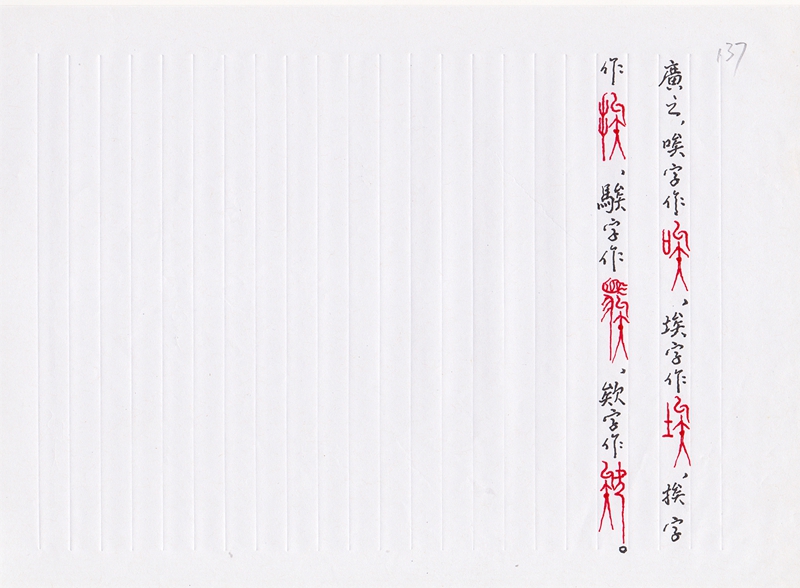 137
廣之，唉字作唉，埃字作埃，挨字
作挨，騃字作騃，欸字作欸。